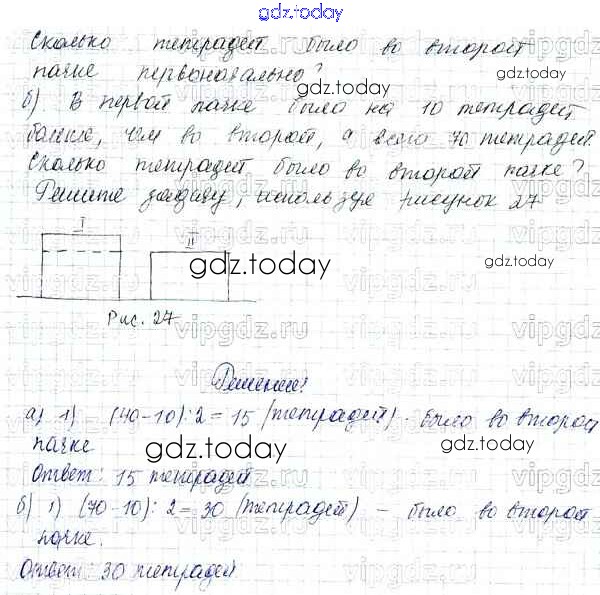 gdz.today
Сколько тетрадей было во второй
пачке первоначально?
gdz.today
б). В первой пачке было на 10 тетрадей
более, чем во второй, а всего 70 тетрадей.
Сколько тетрадей было во второй пачке?
Решите задачу, используя рисунок 27
I II
gdz.today gdz.today
Рис. 27
vipgdz.ru
Решение:
а) 1) (40-10):2=15 (тетрадей) - было во второй
пачке
gdz.today
Ответ: 15 тетрадей
б) 1) (70-10):2=30 (тетрадей) - было во второй
пачке.
gdz.today
Ответ: 30 тетрадей